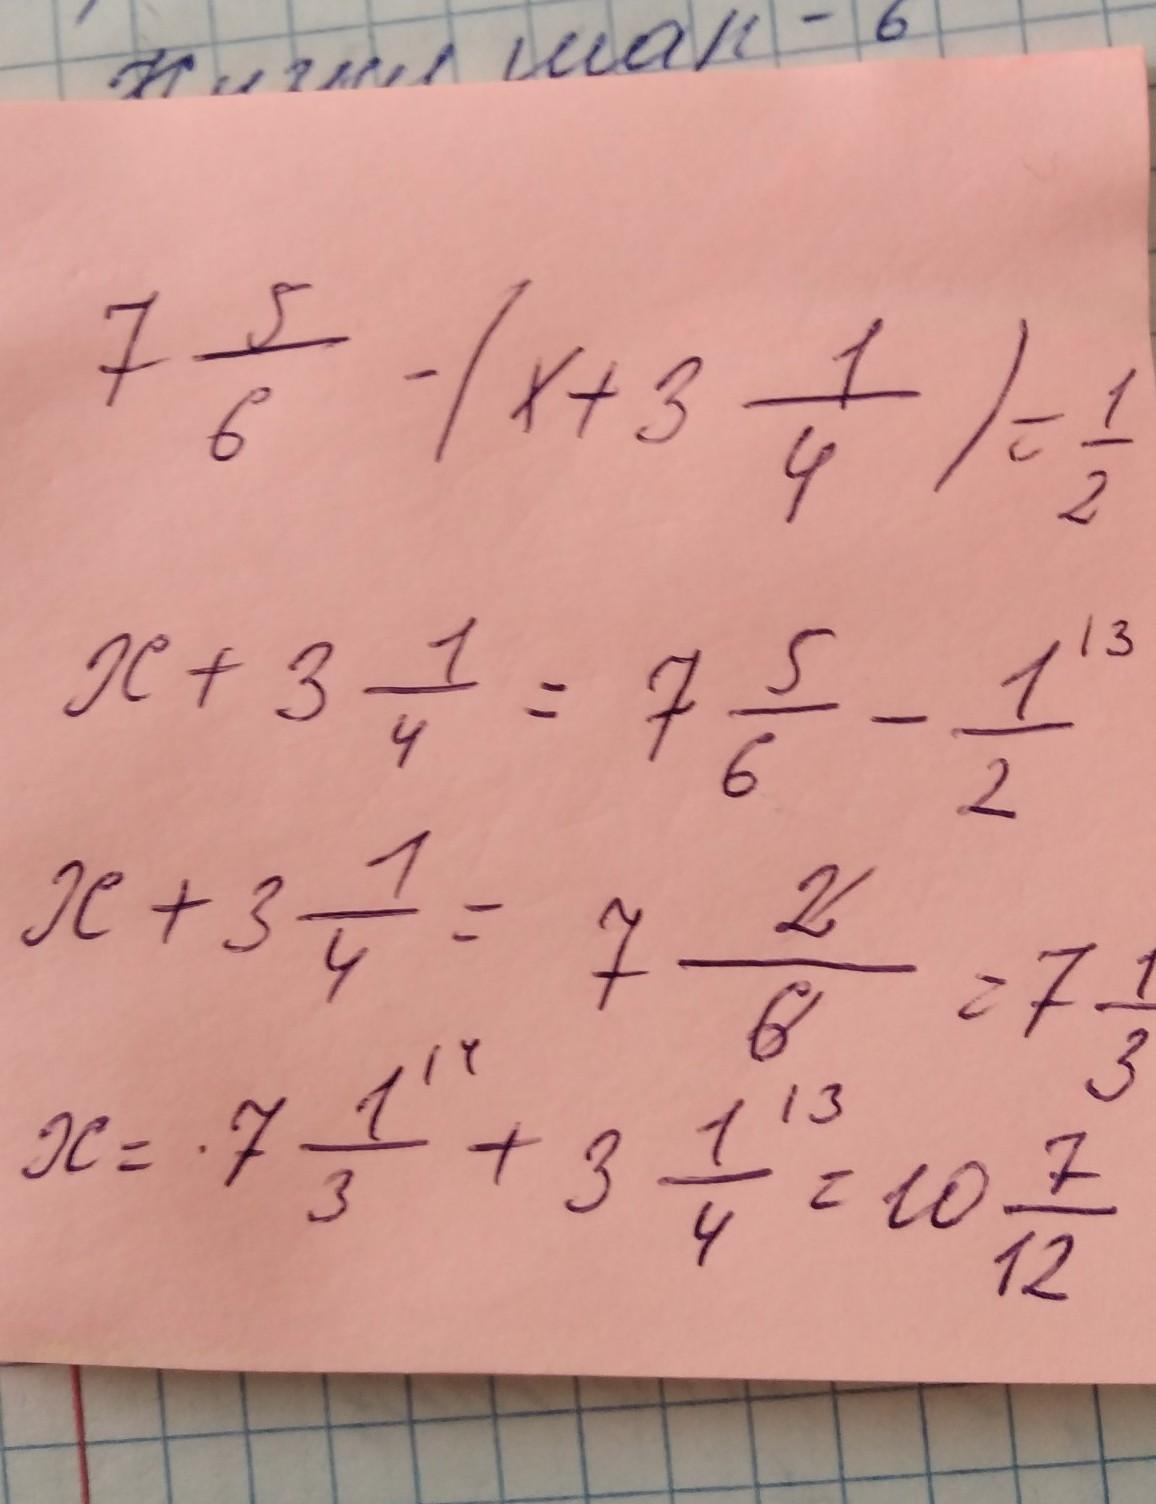 шаг - 6
7 5/6 - (x + 3 1/4) = 1/2
x + 3 1/4 = 7 5/6 - 1/2 |3
x + 3 1/4 = 7 2/6 = 7 1/3
x = 7 1/3 |4 + 3 1/4 |3 = 10 7/12